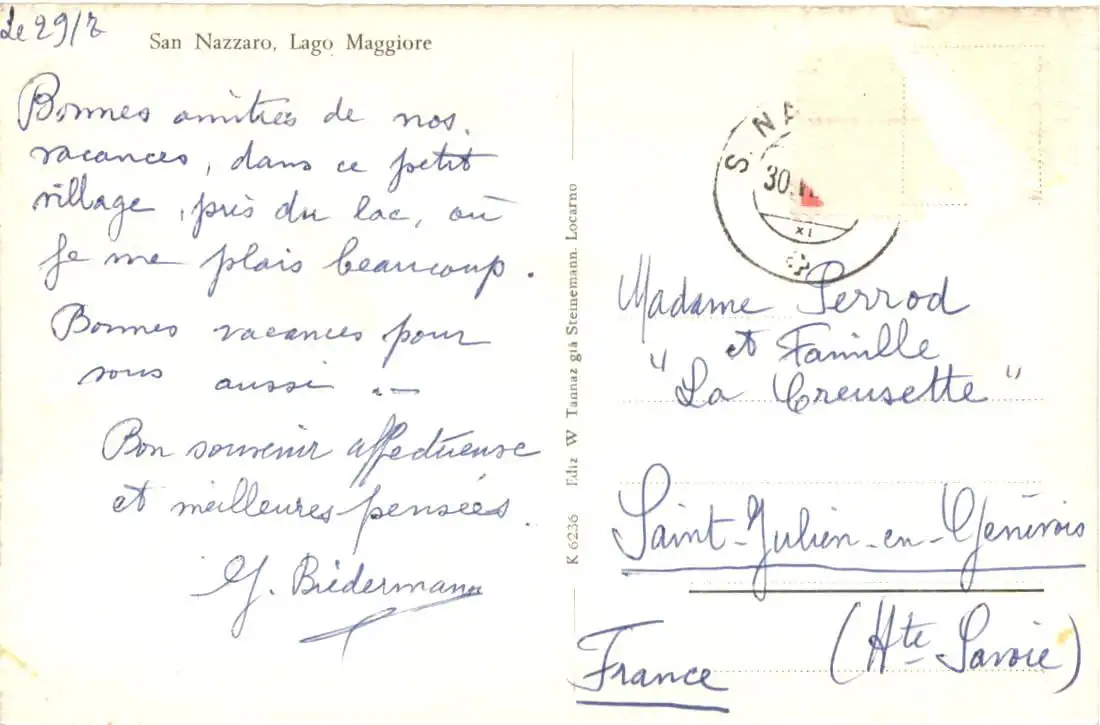 Le 29/7
San Nazzaro, Lago Maggiore
Bonnes amitiés de nos
vacances, dans ce petit
village, près du lac, où
je me plais beaucoup.
Bonnes vacances pour
vous aussi .—
Bon souvenir affectueuse
et meilleures pensées.
G. Biedermann
K 6236 Ediz W Tannaz già Steinemann. Locarno
S. NA
30.VII
XI
Madame Perrod
et Famille
"La Creusette"
Saint-Julien-en-Genevois
(Hte Savoie)
France